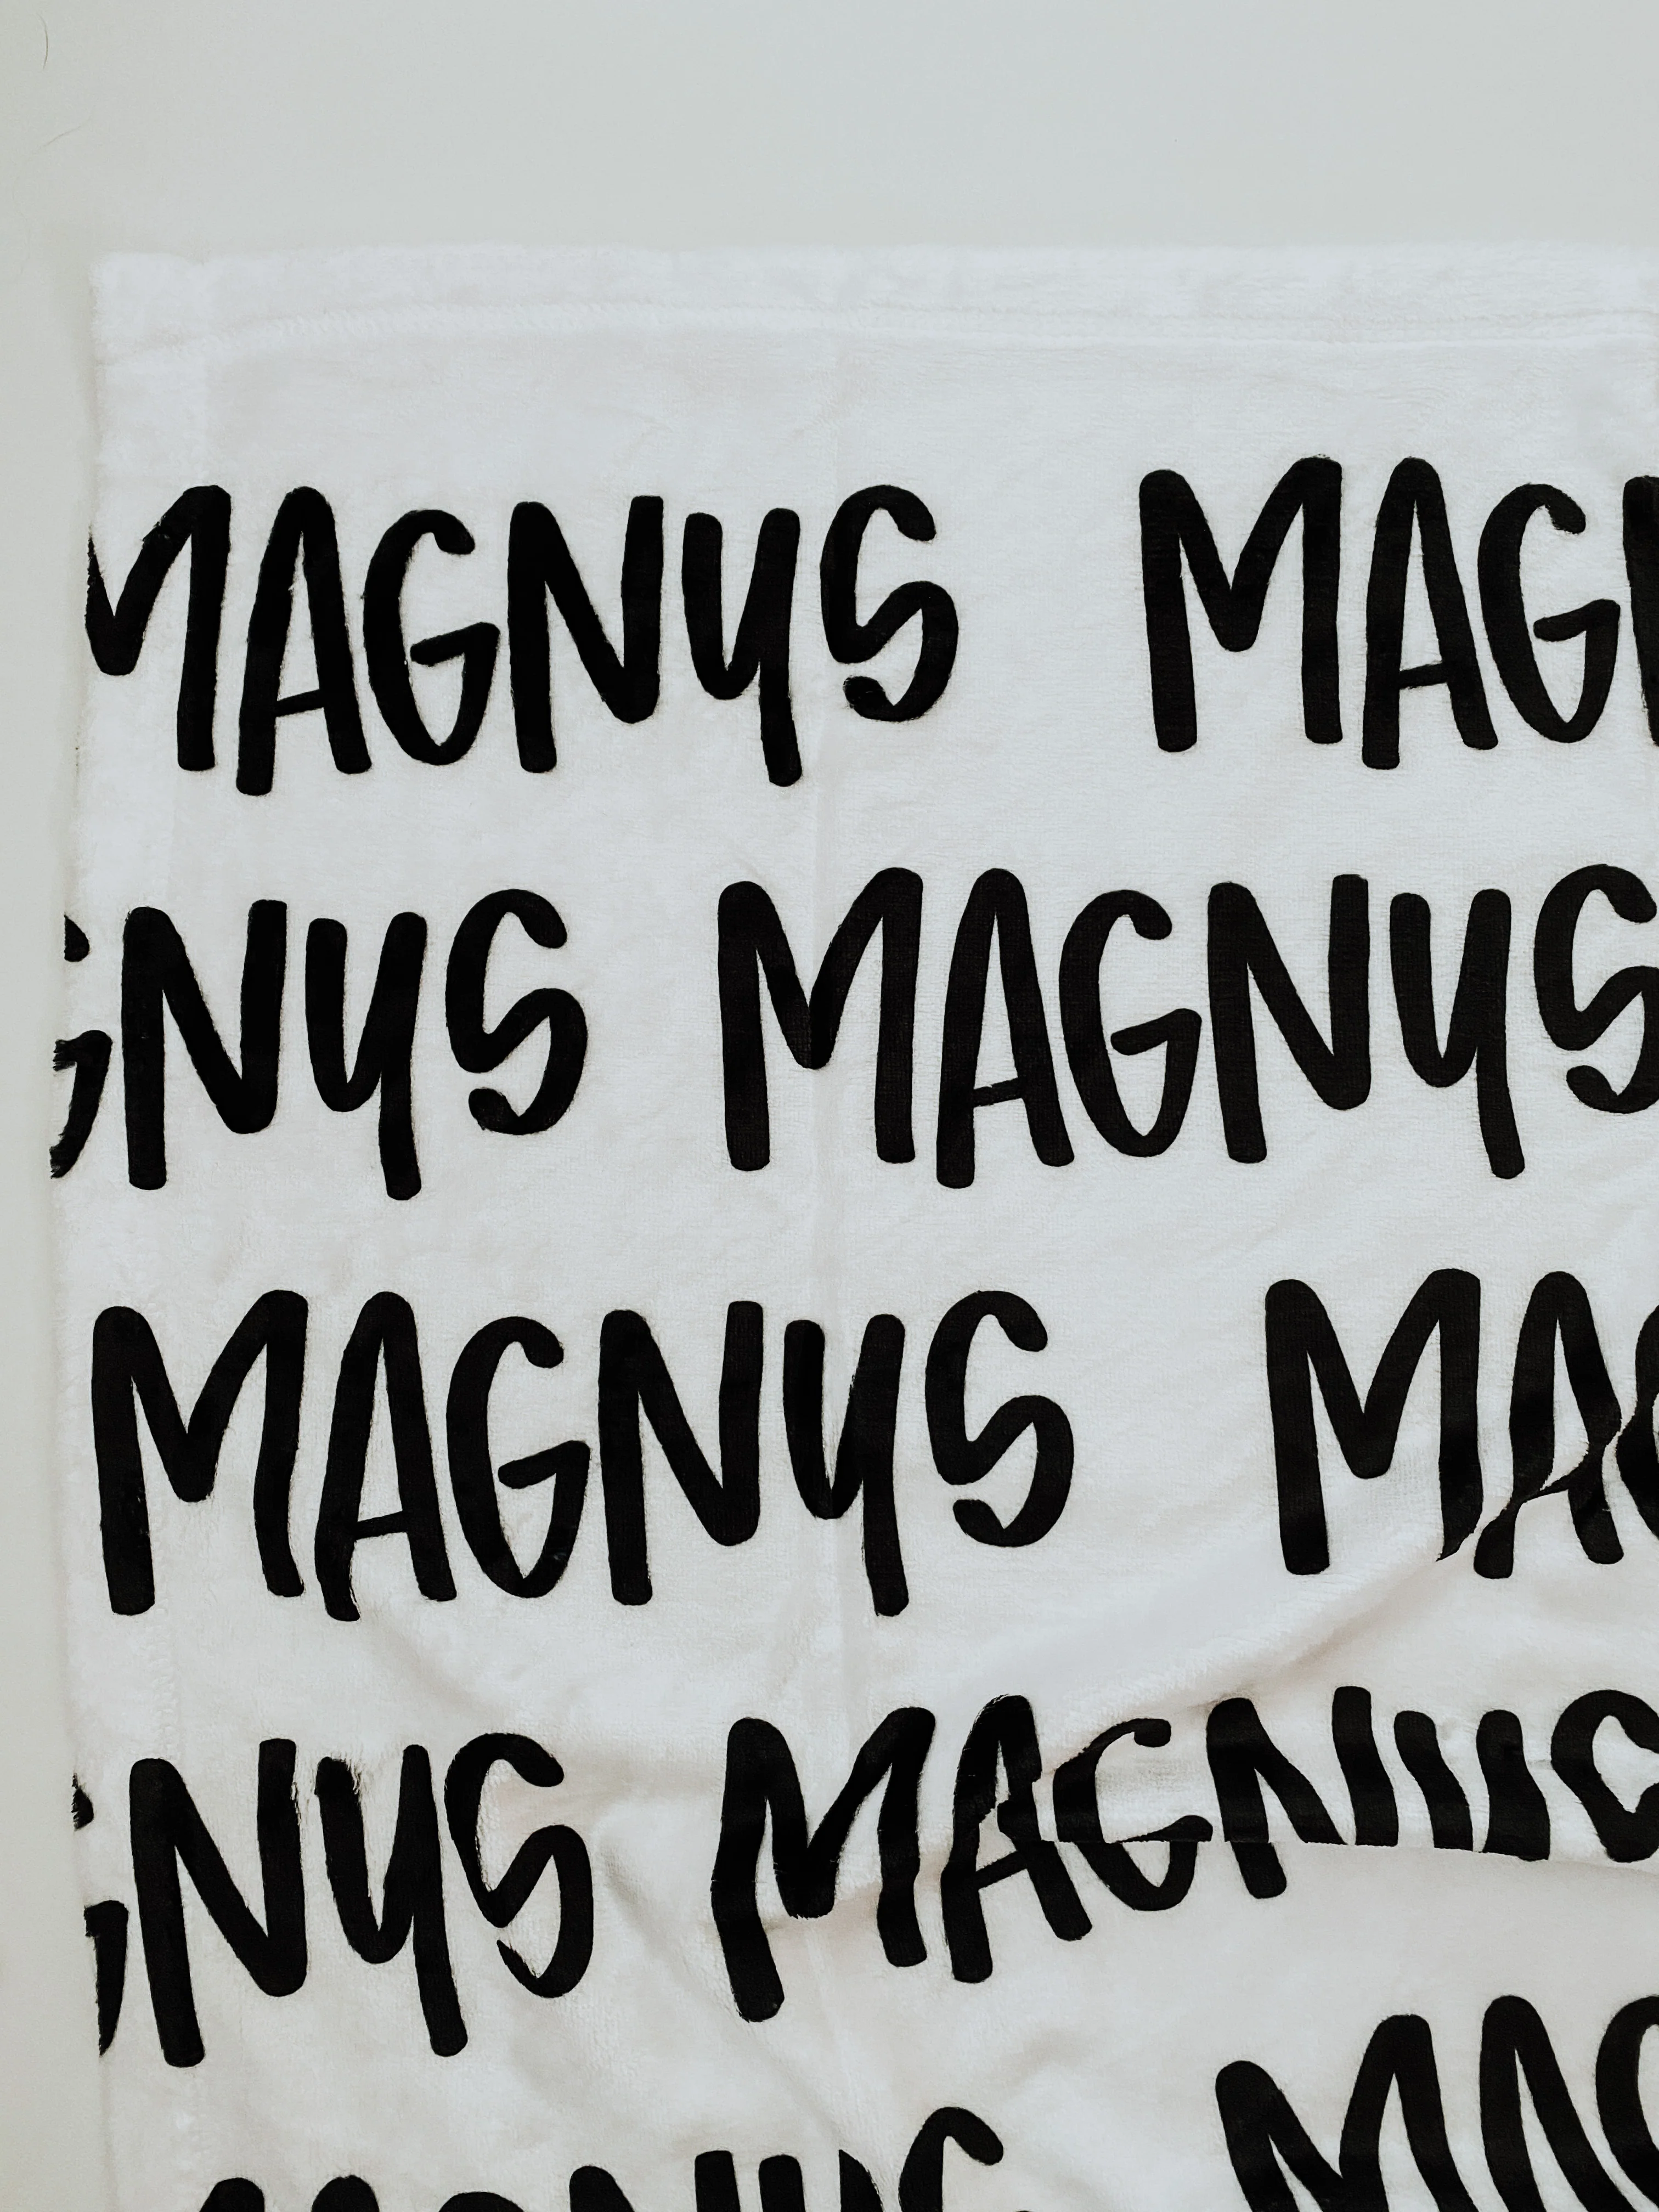 MAGNUS MAGN
GNUS MAGNUS
MAGNUS MAG
GNUS MAGNUS
MAGNUS MAG